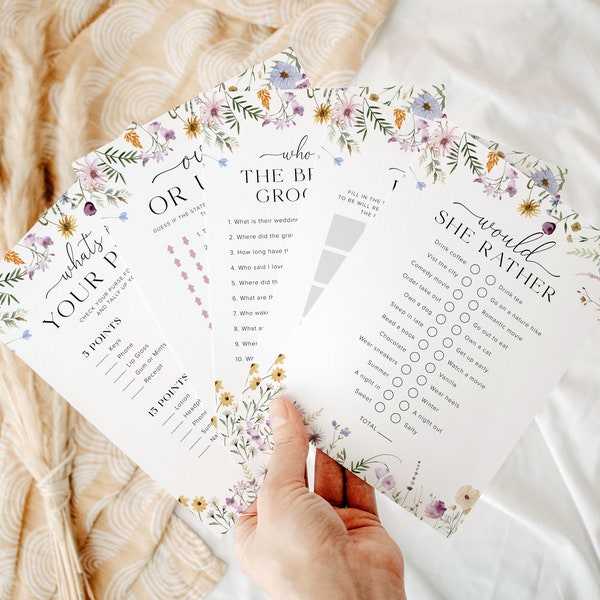 whats
YOUR P
CHECK YOUR PURSE FO
AND TALLY UP YO
5 POINTS
Keys
Phone
Lip Gloss
Gum or Mints
Receipt
15 POINTS
Lotion
Headp
Phone
Sun
Na
OR
GUESS IF THE STATE
1.
who
THE BR
GROO
1. What is their wedding
2. Where did the groom
3. How long have t
4. Who said I love
5. Where did th
6. What are th
7. Who wak
8. What
9. Wher
10.
FILL IN THE
TO BE WILL RE
THE
would
SHE RATHER
Drink coffee Drink tea
Vist the city Go on a nature hike
Comedy movie Romantic movie
Order take out Go out to eat
Own a dog Own a cat
Sleep in late Get up early
Read a book Watch a movie
Chocolate Vanilla
Wear sneakers Wear heels
Summer Winter
A night in A night in
Sweet Salty
TOTAL